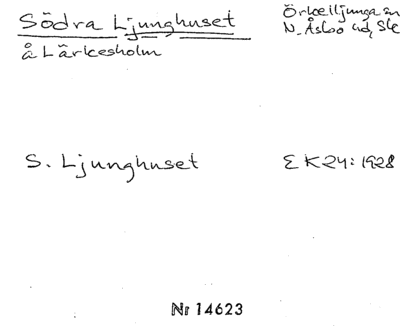 Södra Ljunghuset
å Lärkesholm
Örkelljunga sn
N. Åsbo hd, Sk
S. Ljunghuset
EK24: 1928
Nr 14623